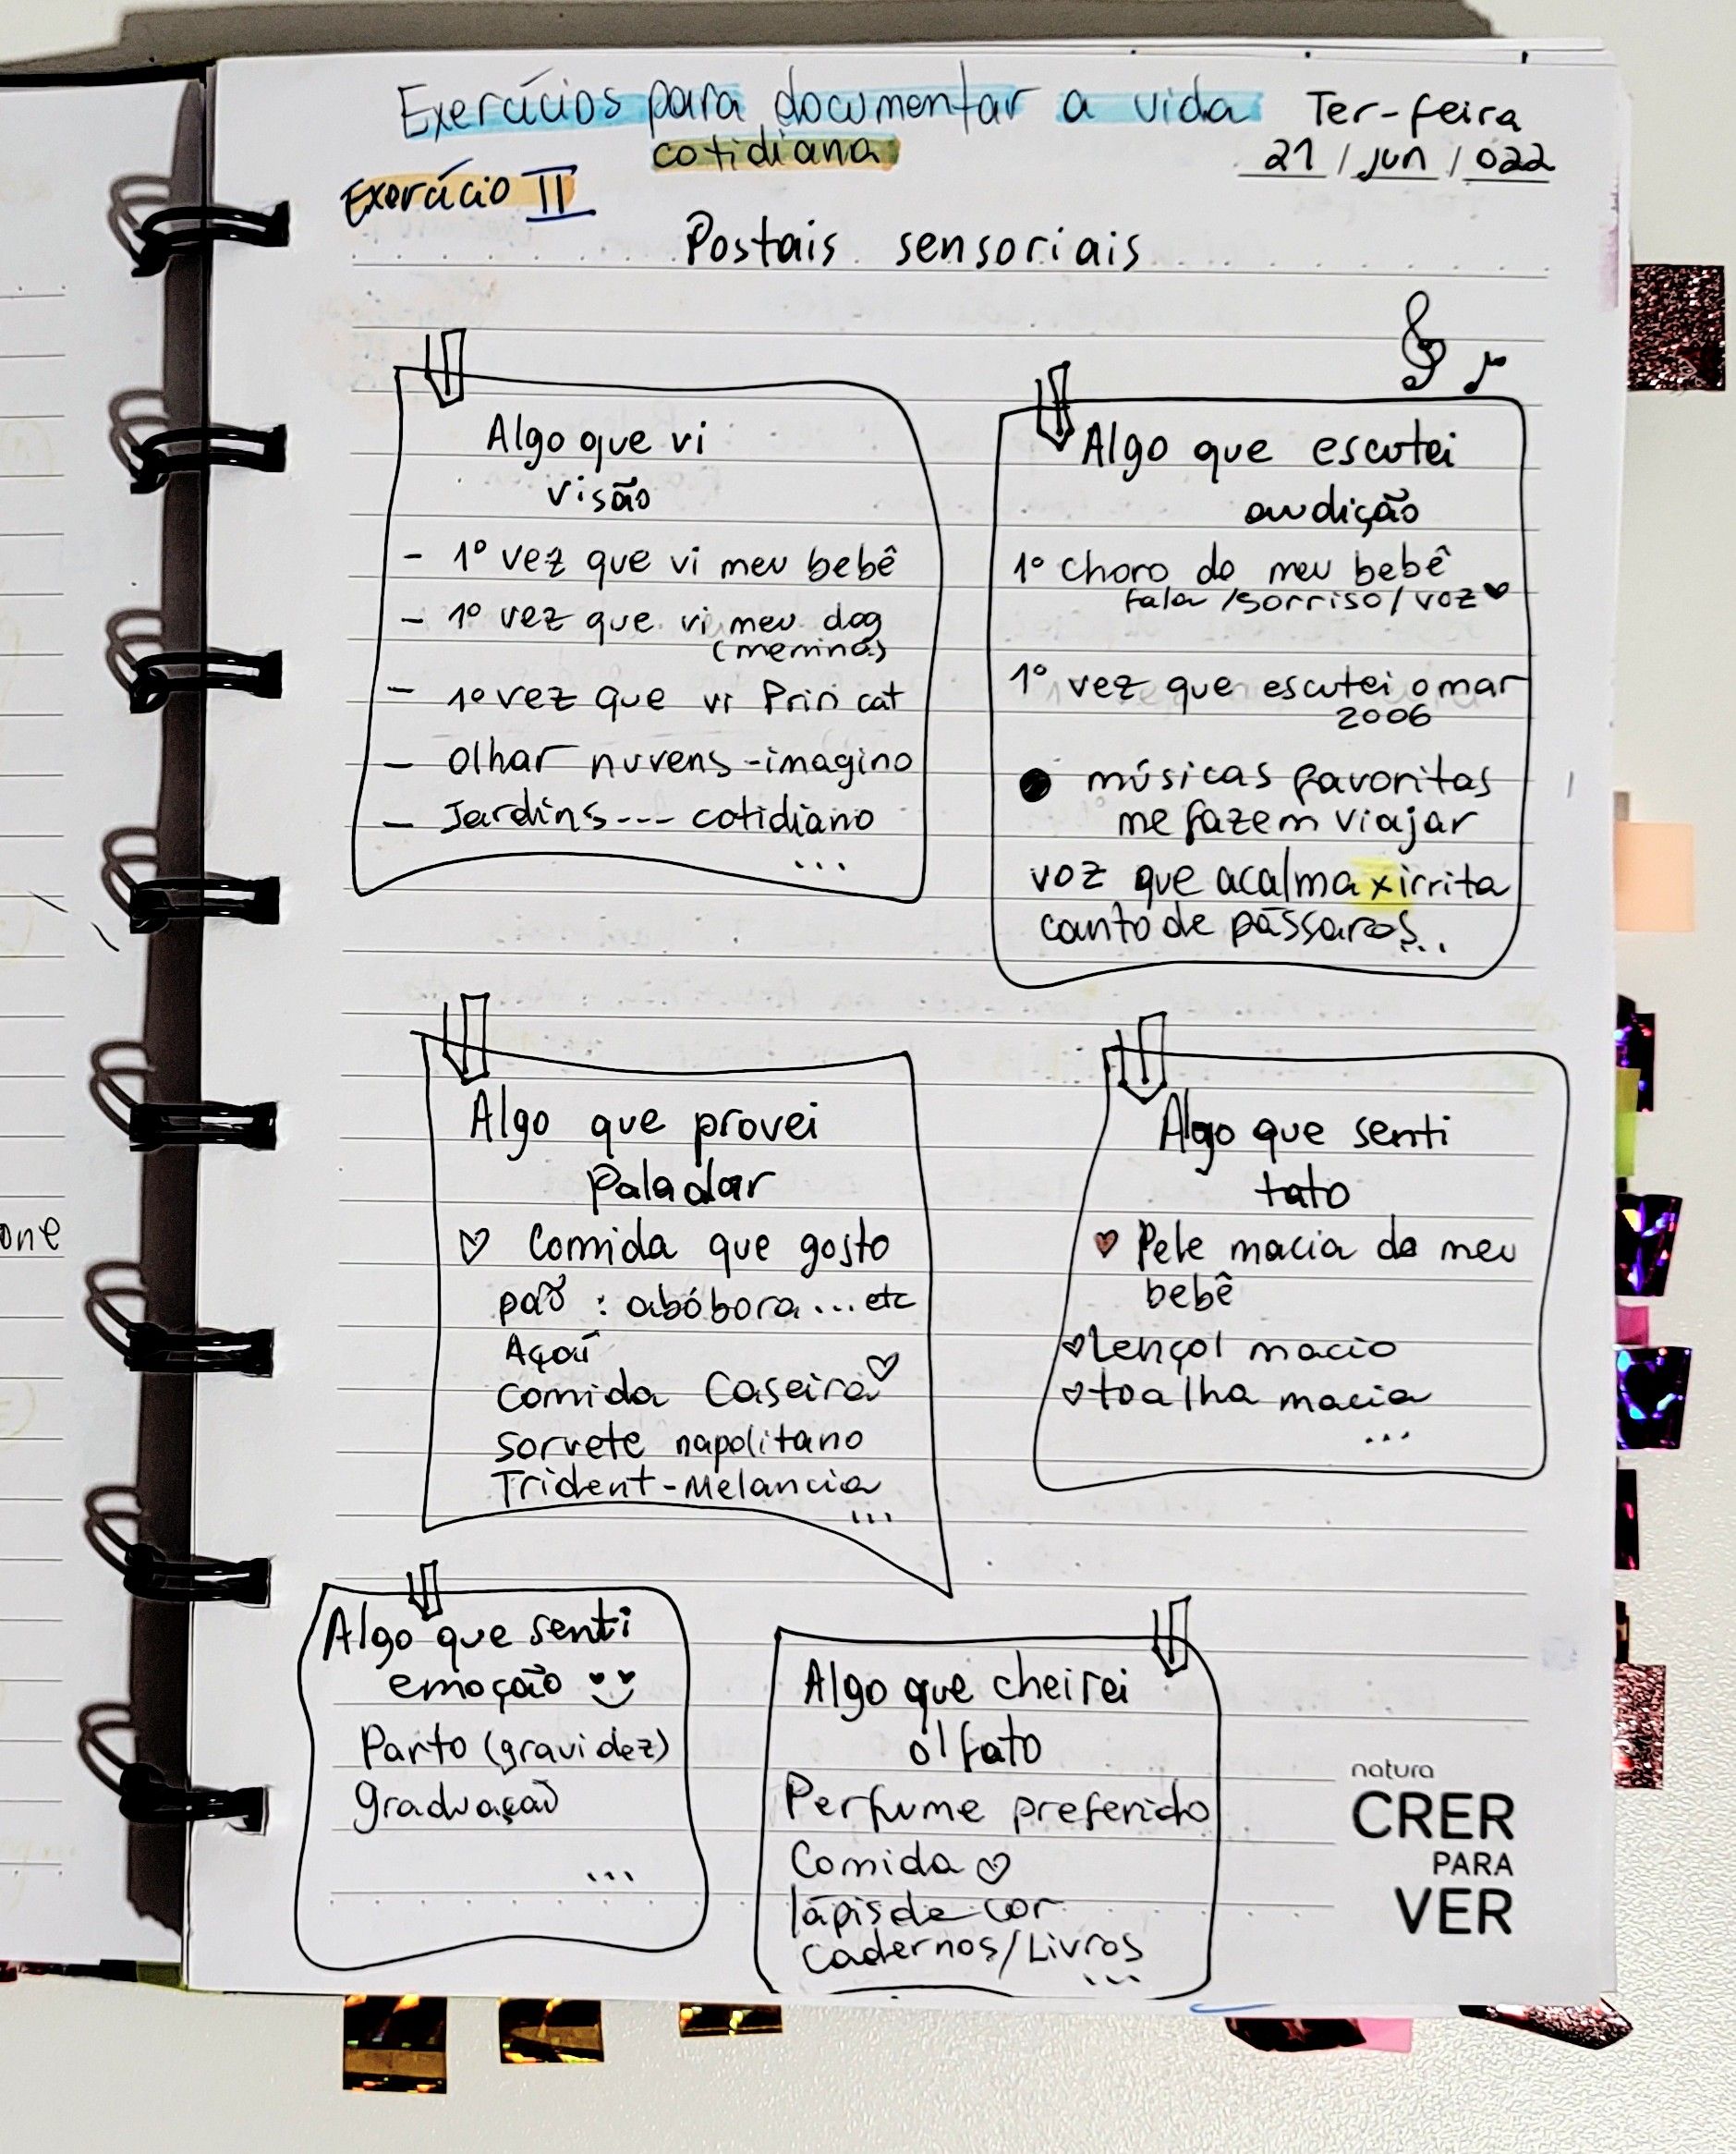 Exercícios para documentar a vida
cotidiana
Ter-feira
21 / jun / 022
Exercício II
Postais sensoriais
Algo que vi
visão
- 1º vez que vi meu bebê
- 1º vez que vi meu dog
(meninas)
- 1º vez que vi Prin cat
- Olhar nuvens - imagino
- Jardins --- cotidiano
...
Algo que escutei
audição
1º choro do meu bebê
fala /sorriso/ voz ♥
1º vez que escutei o mar
2006
● músicas favoritas
me fazem viajar
voz que acalma x irrita
canto de pássaros...
Algo que provei
Paladar
♡ Comida que gosto
pão : abóbora ... etc
Açaí
comida Caseira ♡
sorvete napolitano
Trident - Melancia
...
Algo que senti
tato
♥ Pele macia do meu
bebê
♡ Lençol macio
♡ toalha macia
...
Algo que senti
emoção
Parto (gravidez)
graduação
...
Algo que cheirei
olfato
Perfume preferido
Comida ♡
lápis de cor
cadernos/Livros
...
natura
CRER
PARA
VER
one